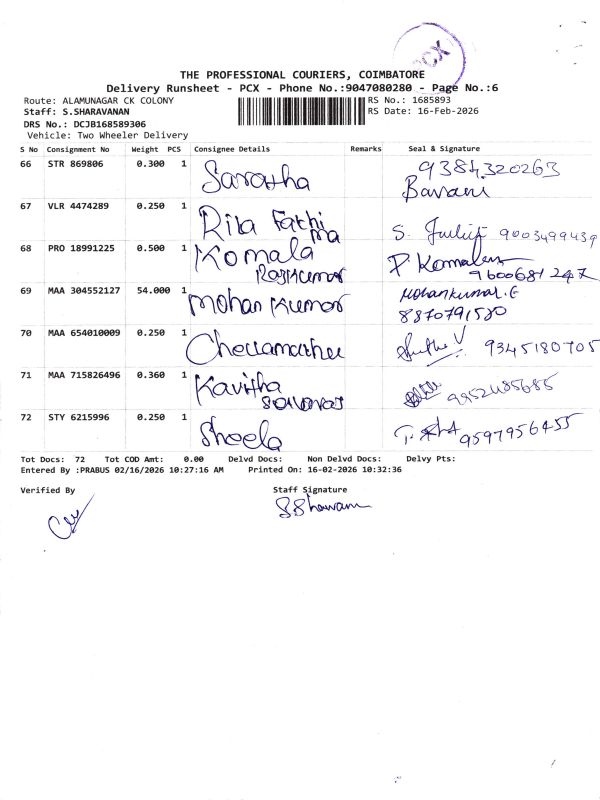 PCX
THE PROFESSIONAL COURIERS, COIMBATORE
Delivery Runsheet - PCX - Phone No.:9047080280 - Page No.:6
Route: ALAMUNAGAR CK COLONY
RS No.: 1685893
Staff: S.SHARAVANAN
RS Date: 16-Feb-2026
DRS No.: DCJB168589306
Vehicle: Two Wheeler Delivery
S No Consignment No Weight PCS Consignee Details Remarks Seal & Signature
66 STR 869806 0.300 1 Saratha 9384320263
Bavani
67 VLR 4474289 0.250 1 Rita Fathi S. 9003499439
ma
68 PRO 18991225 0.500 1 Komala P. Komalam
Rajkumar 9600681247
69 MAA 304552127 54.000 1 Mohan Kumar Mohankumar.G
8870791580
70 MAA 654010009 0.250 1 Chellamuthu V 9345180705
71 MAA 715826496 0.360 1 Kavitha 9952485685
72 STY 6215996 0.250 1 Sheela 9597956455
Tot Docs: 72 Tot COD Amt: 0.00 Delvd Docs: Non Delvd Docs: Delvy Pts:
Entered By :PRABUS 02/16/2026 10:27:16 AM Printed On: 16-02-2026 10:32:36
Verified By Staff Signature